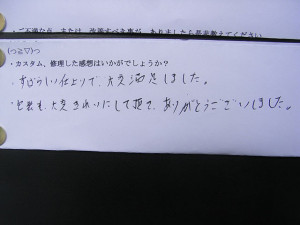 ・ご不満な点、または、改善すべき事が、ありましたら是非教えてください
(っ≧▽)っ
・カスタム、修理した感想はいかがでしょうか？
・すばらしい仕上りで、大変満足しました。
・包装も、大変きれいにして頂き、ありがとうございました。